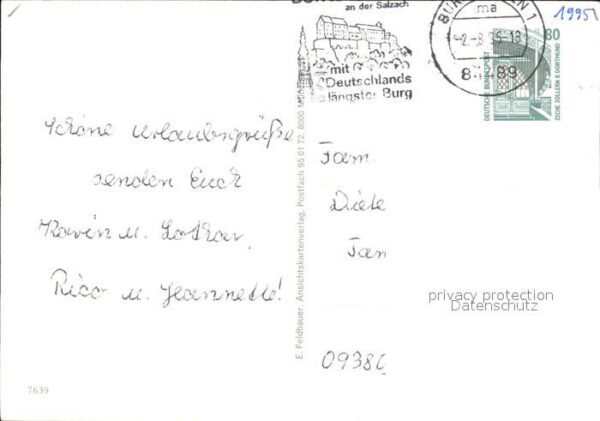 an der Salzach
mit
Deutschlands
längster Burg
1
ma
-2.-8.95-18
84489
1995
80
DEUTSCHE BUNDESPOST
ZECHE ZOLLERN II DORTMUND
Schöne Urlaubsgrüße
senden Euch
Karin u. Lothar,
Rico u. Jeannette!
E. Feldhauer, Ansichtskartenverlag, Postfach 95 01 72, 8000
Fam.
Diete
09386
privacy protection
Datenschutz
7639